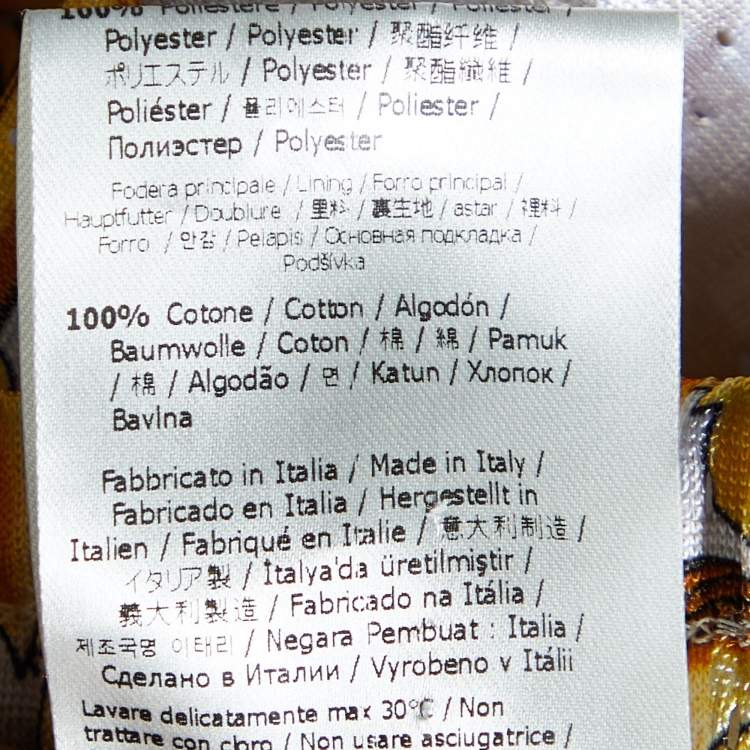 100% Poliestere / Polyester / Poliéster /
Polyester / Polyester / 聚酯纤维 /
ポリエステル / Polyester / 聚酯纖維 /
Poliéster / 폴리에스터 / Poliester /
Полиэстер / Polyester
Fodera principale / Lining / Forro principal /
Hauptfutter / Doublure / 里料 / 裏生地 / astar / 裡料 /
Forro / 안감 / Pelapis / Основная подкладка /
Podšívka
100% Cotone / Cotton / Algodón /
Baumwolle / Coton / 棉 / 綿 / Pamuk
/ 棉 / Algodão / 면 / Katun / Хлопок /
Bavlna
Fabbricato in Italia / Made in Italy /
Fabricado en Italia / Hergestellt in
Italien / Fabriqué en Italie / 意大利制造 /
イタリア製 / İtalya'da üretilmiştir /
義大利製造 / Fabricado na Itália /
제조국명 이태리 / Negara Pembuat : Italia /
Сделано в Италии / Vyrobeno v Itálii
Lavare delicatamente max 30°C / Non
trattare con cloro / Non usare asciugatrice /